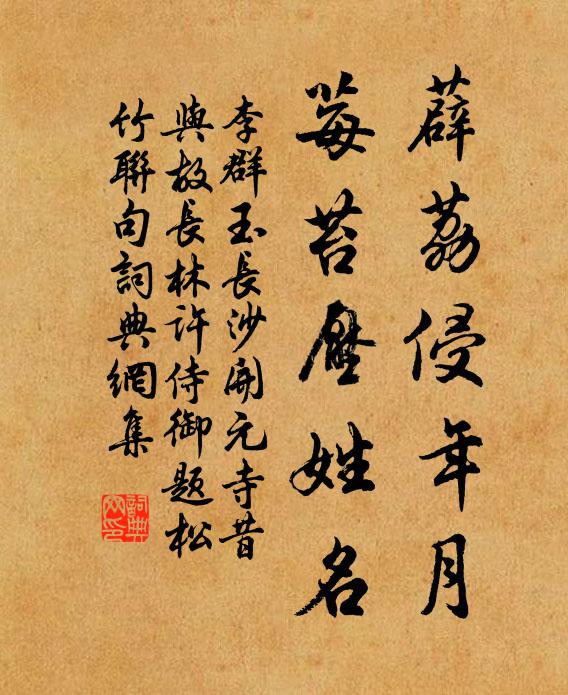 薜荔侵年月
莓苔壓姓名
李群玉長沙開元寺昔
與故長林許侍御題松
竹聯句詞典網集
詞典
网印